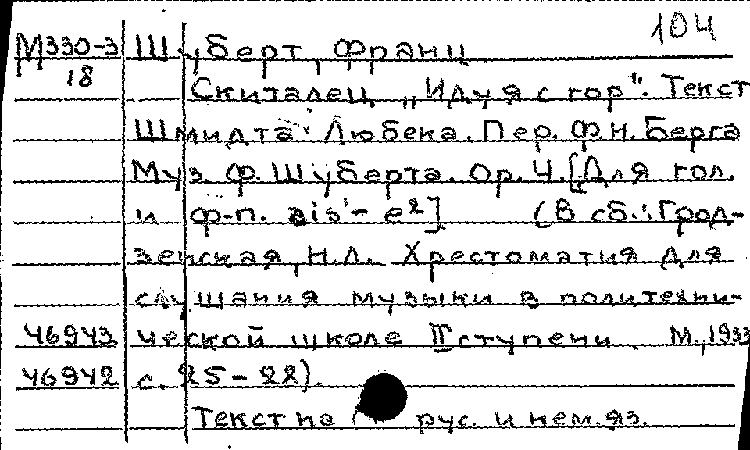 104
М330-3 Шуберт, Франц
18 Скиталец „Идуя с гор". Текст
Шмидта Любека. Пер. Ф.Н. Берга
Муз. Ф. Шуберта. Ор. 4. [Для гол.
и ф-п. ais'- e2] (В сб.: Грод-
зенская, Н.Л. Хрестоматия для
слушания музыки в политехни-
46943 ческой школе II ступени. М., 1933
46942 с. 25-22).
Текст на рус. и нем. яз.